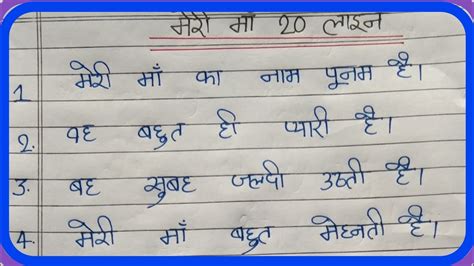 मेरी माँ 20 लाइन
1 मेरी माँ का नाम पूनम है।
2. वह बहुत ही प्यारी है।
3. वह सुबह जल्दी उठती है।
4. मेरी माँ बहुत मेहनती है।